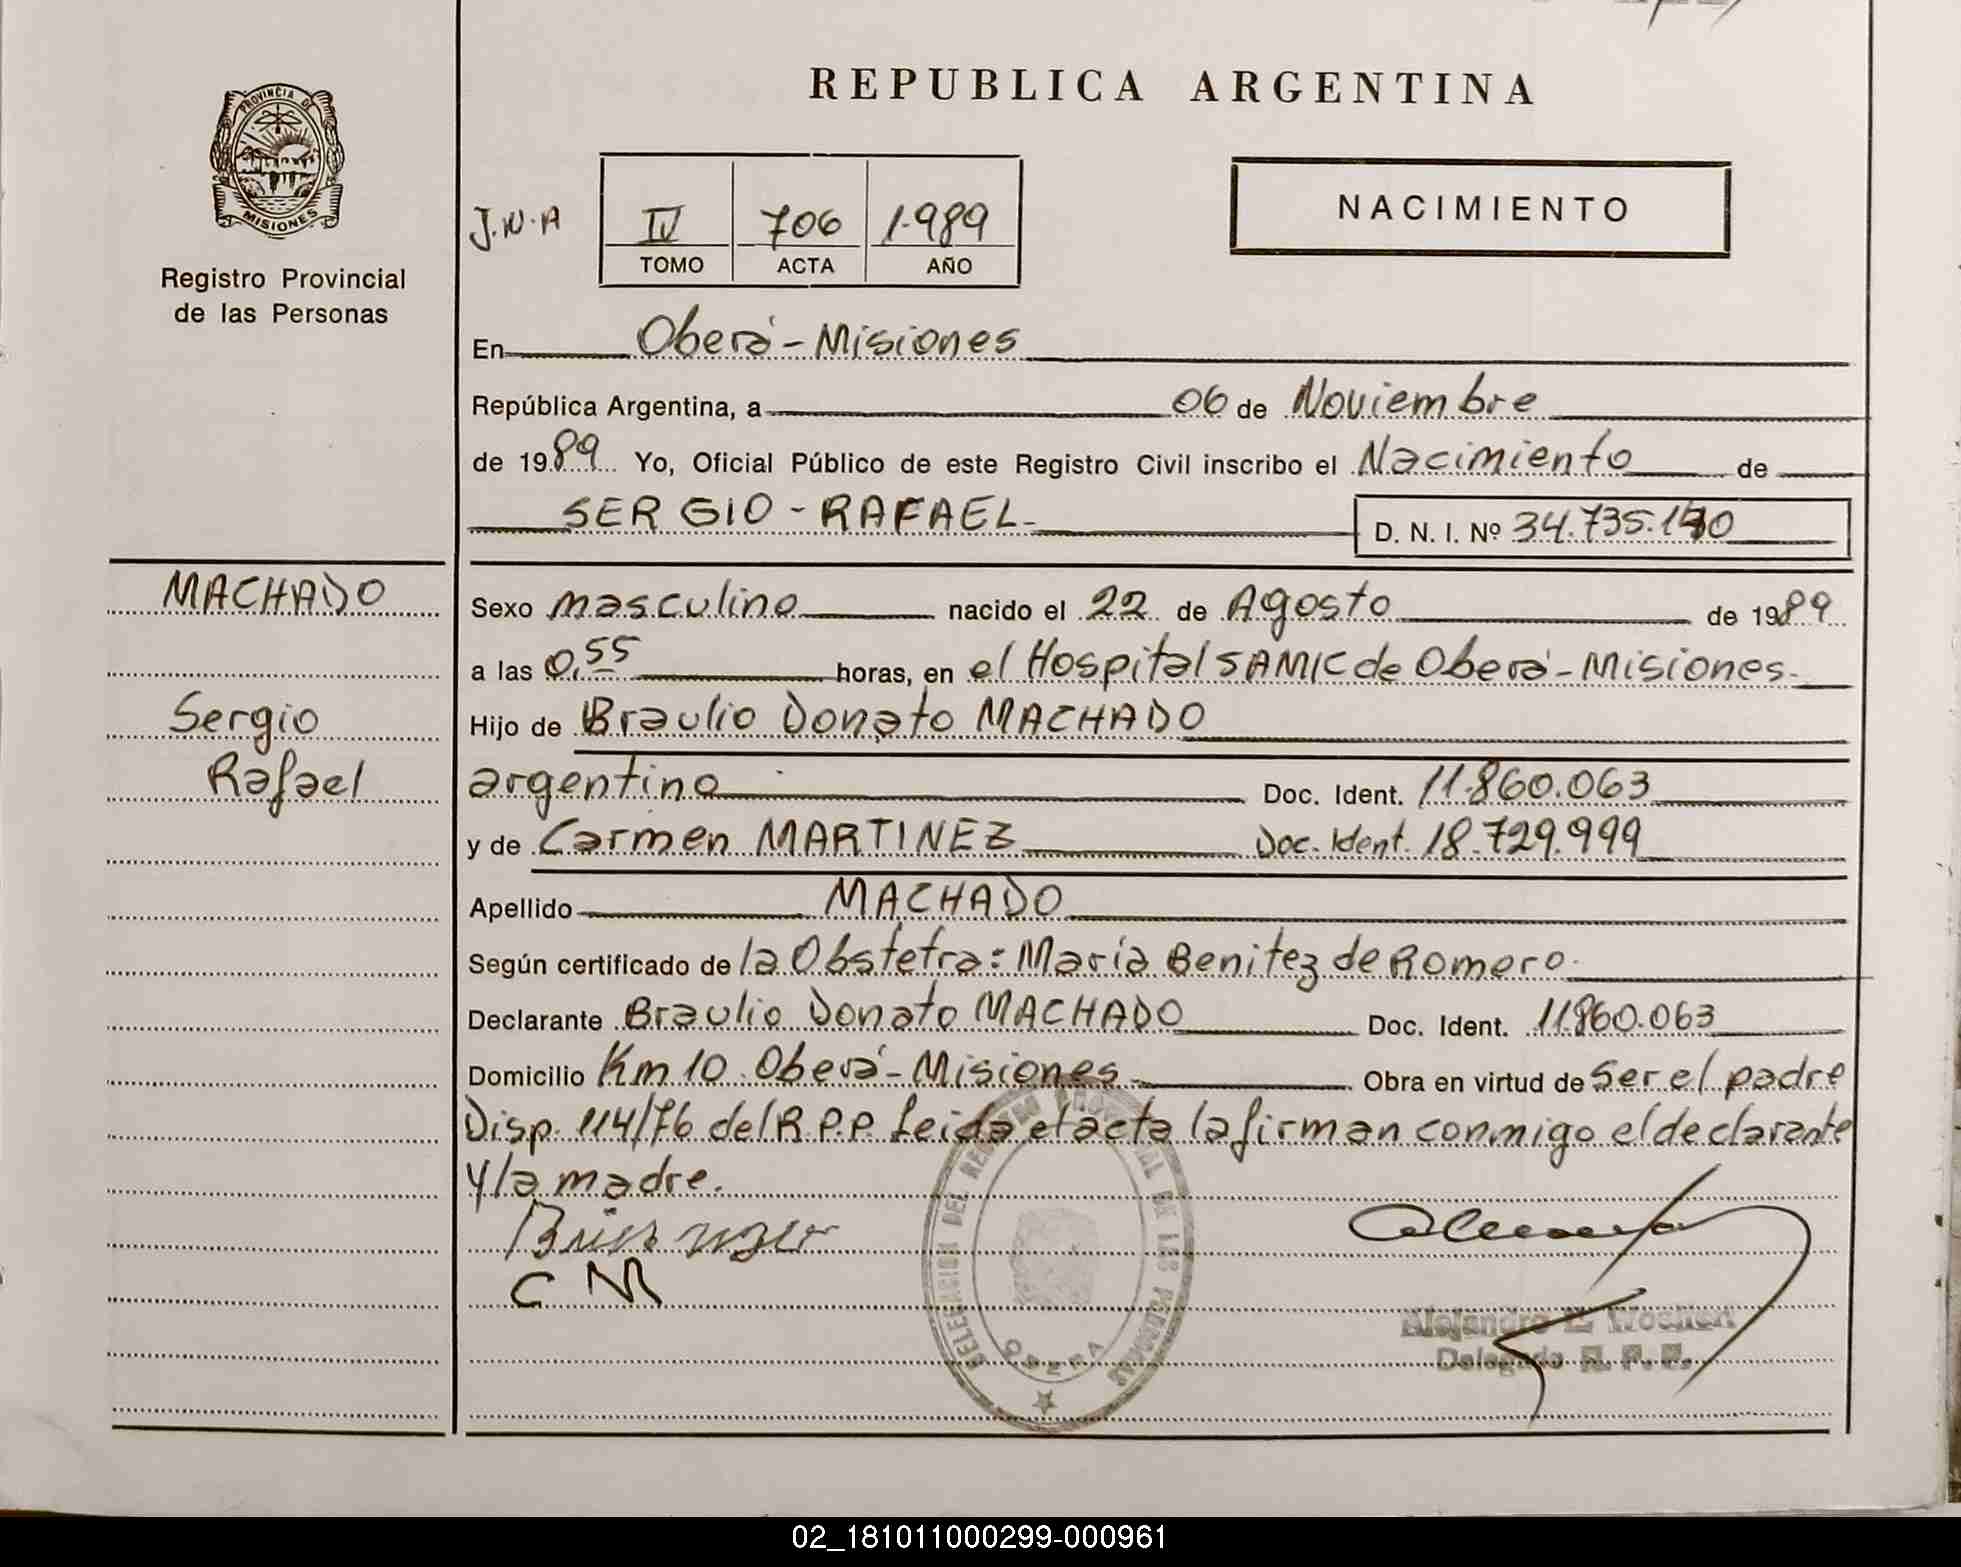 REPUBLICA ARGENTINA
PROVINCIA DE
MISIONES
Registro Provincial
de las Personas
J.N.A
IV 706 1.989
TOMO ACTA AÑO
NACIMIENTO
En Oberá - Misiones
República Argentina, a 06 de Noviembre
de 1989 Yo, Oficial Público de este Registro Civil inscribo el Nacimiento de
SERGIO - RAFAEL -
D. N. I. Nº
MACHADO
Sergio
Rafael
Sexo masculino nacido el 22 de Agosto de 1989
a las 0,55 horas, en el Hospital SAMIC de Oberá - Misiones -
Hijo de Braulio Donato MACHADO
argentino Doc. Ident. 11.860.063
y de Carmen MARTINEZ Doc. Ident. 18.729.999
Apellido MACHADO
Según certificado de la Obstetra: María Benitez de Romero.
Declarante Braulio Donato MACHADO Doc. Ident. 11860.063
Domicilio Km 10 Oberá - Misiones - Obra en virtud de ser el padre
Disp. 114/76 del R.P.P. Leida el acta la firman conmigo el declarante
y la madre.
C M
DELEGACION DEL REGISTRO PROVINCIAL DE LAS PERSONAS
OBERA
Alejandro
Delegado R. P. P.
02_181011000299-000961